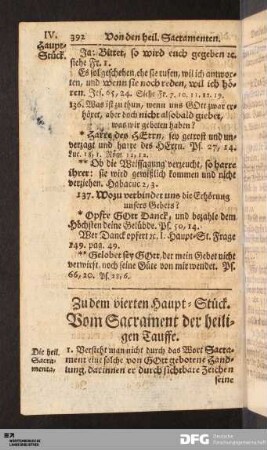 IV.
Haupt-
Stück.
392 Von den heil. Sacramenten.
Ja: Bittet, so wird euch gegeben ꝛc.
siehe Fr. 1.
Es sol geschehen, ehe sie rufen, wil ich antwor-
ten, und wenn sie noch reden, wil ich hö-
ren. Jes. 65, 24. Siehe Fr. 7. 10. 11. 12. 19.
136. Was ist zu thun, wenn uns GOtt zwar er-
höret, aber doch nicht alsobald giebet,
was wir gebeten haben?
* Harre des HErrn, sey getrost und un-
verzagt und harre des HErrn. Ps. 27, 14.
Luc. 18, 1. Röm. 12, 12.
** Ob die Weissagung verzeucht, so harre
ihrer: sie wird gewißlich kommen und nicht
verziehen. Habacuc 2, 3.
137. Wozu verbindet uns die Erhörung
unsers Gebets?
* Opfre GOtt Danck, und bezahle dem
Höchsten deine Gelübde. Ps. 50, 14.
Wer Danck opfert ꝛc. I. Haupt-St. Frage
149. pag. 49.
** Gelobet sey GOtt, der mein Gebet nicht
verwirft, noch seine Güte von mir wendet. Ps.
66, 20. Ps. 28, 6.
Zu dem vierten Haupt-Stück.
Vom Sacrament der heili-
gen Tauffe.
Die heil.
Sacra-
menta.
1. Versteht man nicht durch das Wort Sacra-
ment eine solche von GOtt gebotene Hand-
lung, darinnen er durch sichtbare Zeichen
seine
DFG Deutsche
Forschungsgemeinschaft